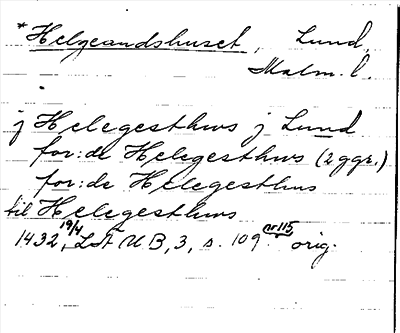 *Helgeandshuset, Lund,
Malm. l.
j Helegesthws j Lund
for:de Helegesthws (2 ggr.)
for:de Helegesthus
til Helegesthws
1432 19/4, LÄUB, 3, s. 109 nr 115 orig.